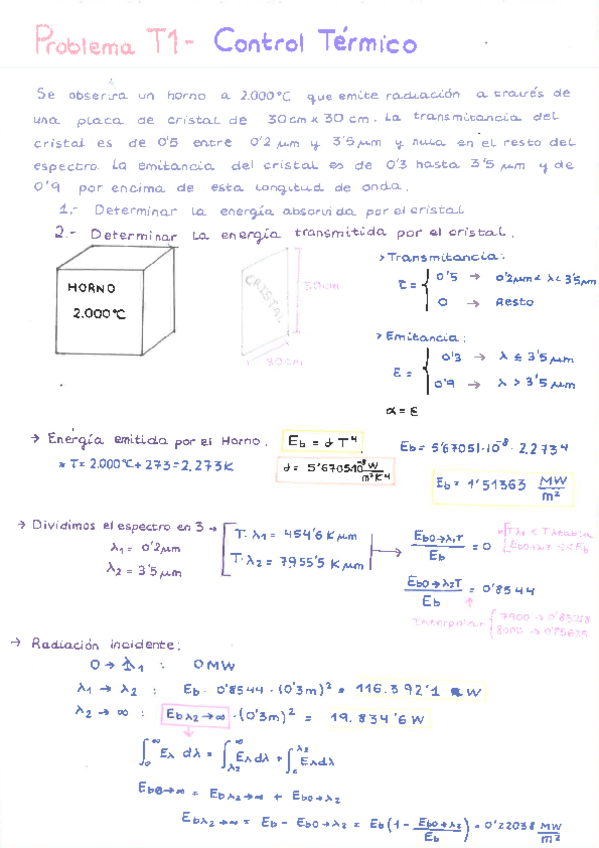 Problema T1- Control Térmico
Se observa un horno a 2.000ºC que emite radiación a través de
una placa de cristal de 30cm x 30 cm. La transmitancia del
cristal es de 0'5 entre 0'2 μm y 3'5 μm y nula en el resto del
espectro. La emitancia del cristal es de 0'3 hasta 3'5 μm y de
0'9 por encima de esta longitud de onda.
1.- Determinar la energía absorvida por el cristal
2.- Determinar la energía transmitida por el cristal.
HORNO
2.000ºC
CRISTAL
30cm
30cm
> Transmitancia:
τ = { 0'5 → 0'2μm < λ < 3'5μm
0 → Resto
> Emitancia:
ε = { 0'3 → λ ≤ 3'5μm
0'9 → λ > 3'5μm
α = ε
→ Energía emitida por el Horno. Eb = σ T⁴ Eb = 5'67051·10⁻⁸ · 2.273⁴
* T = 2.000ºC + 273 = 2.273K σ = 5'67051·10⁻⁸ W/m²K⁴ Eb = 1'51363 MW/m²
→ Dividimos el espectro en 3 →
λ1 = 0'2μm
λ2 = 3'5μm
T·λ1 = 454'6 K μm
T·λ2 = 7955'5 K μm
Eb0→λ1T / Eb = 0
Tλ1 < Tλtabla
Eb0→λ2T / Eb = 0'8544
Interpolar { 7900 → 0'85218
8000 → 0'85625
→ Radiación incidente:
0 → λ1 : 0MW
λ1 → λ2 : Eb · 0'8544 · (0'3m)² = 116.392'1 W
λ2 → ∞ : Ebλ2→∞ · (0'3m)² = 19.834'6 W
∫₀^∞ Eλ dλ = ∫λ2^∞ Eλ dλ + ∫₀^λ2 Eλ dλ
Eb0→∞ = Ebλ2→∞ + Eb0→λ2
Ebλ2→∞ = Eb - Eb0→λ2 = Eb (1 - Eb0→λ2 / Eb) = 0'22038 MW/m²